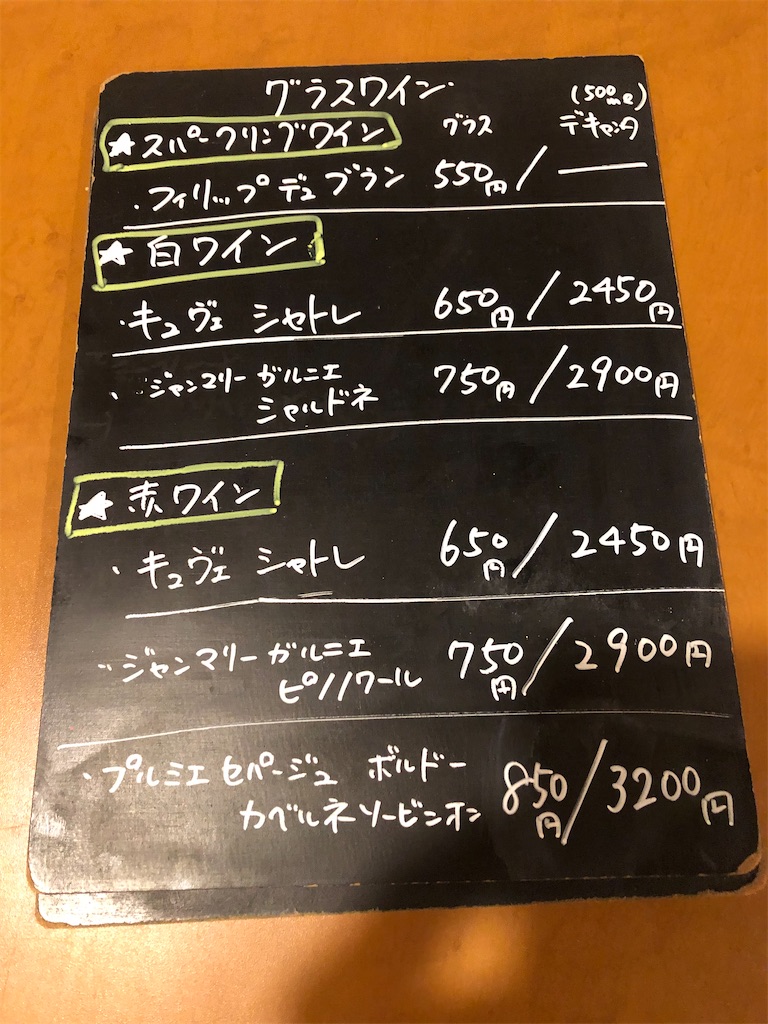 グラスワイン
(500ml)
★スパークリングワイン グラス デキャンタ
・フィリップ デュ ブラン 550円/――
★白ワイン
・キュヴェ シャトレ 650円/2450円
・ジャンマリー ガルニエ 750円/2900円
シャルドネ
★赤ワイン
・キュヴェ シャトレ 650円/2450円
・ジャンマリー ガルニエ 750円/2900円
ピノノワール
・プルミエ セパージュ ボルドー 850円/3200円
カベルネソービニオン